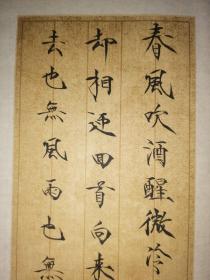 春風吹酒醒微冷
却相迎回首向来
去也無風雨也無